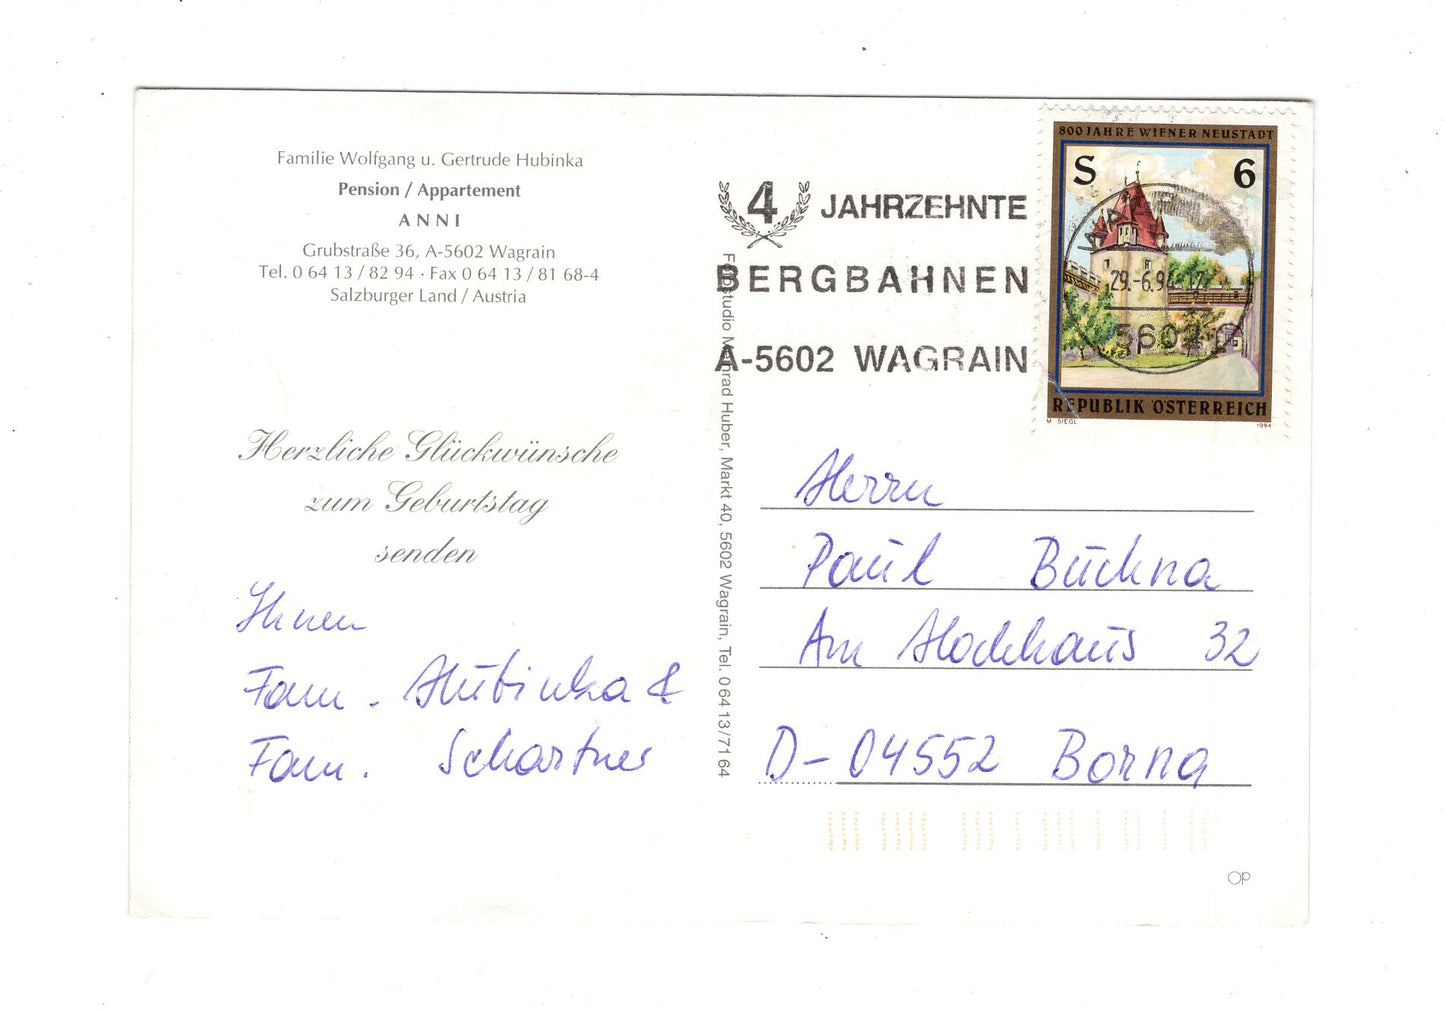 Familie Wolfgang u. Gertrude Hubinka
Pension / Appartement
ANNI
Grubstraße 36, A-5602 Wagrain
Tel. 0 64 13 / 82 94 · Fax 0 64 13 / 81 68-4
Salzburger Land / Austria
Herzliche Glückwünsche
zum Geburtstag
senden
Ihnen
Fam. Hubinka &
Fam. Schartner
Fotostudio Meinhrad Huber, Markt 40, 5602 Wagrain, Tel. 0 64 13/71 64
4 JAHRZEHNTE
BERGBAHNEN
A-5602 WAGRAIN
800 JAHRE WIENER NEUSTADT
S 6
29.-6.94-17
5602
REPUBLIK ÖSTERREICH
SIEGL 1994
Herrn
Paul Buckna
Am Hochhaus 32
D-04552 Borna
OP